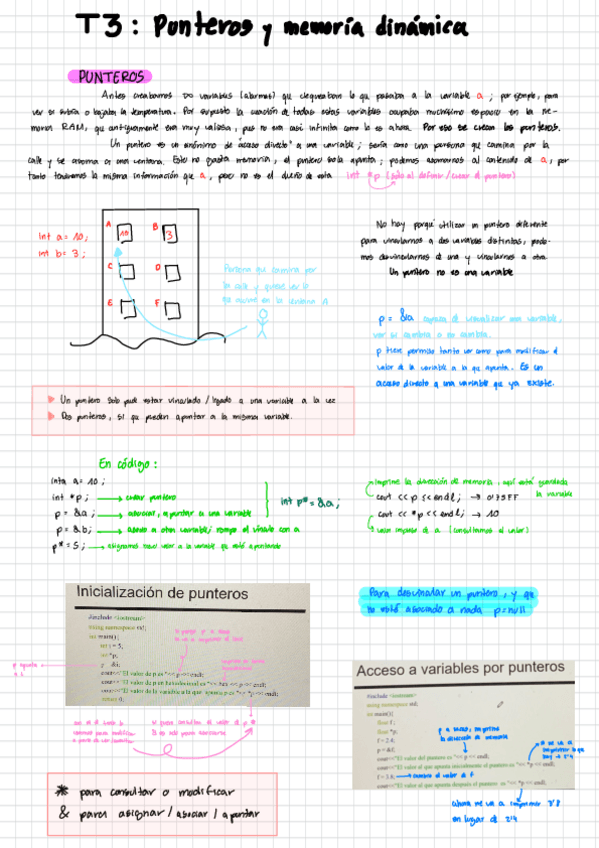 T3: Punteros y memoria dinámica
PUNTEROS
Antes creábamos 20 variables (alarmas) que chequeaban lo que pasaba a la variable a; por ejemplo, para
ver si subía o bajaba la temperatura. Por supuesto la creación de todas estas variables ocupaba muchísimo espacio en la me-
moria RAM, que antiguamente era muy valiosa, pues no era casi infinita como lo es ahora. Por eso se crean los punteros.
Un puntero es un sinónimo de "acceso directo" a una variable; sería como una persona que camina por la
calle y se asoma a una ventana. Esto no gasta memoria, el puntero solo apunta; podemos asomarnos al contenido de a, por
tanto tendremos la misma información que a, pero no es el dueño de esta int *p (solo al definir/crear el puntero)
int a = 10;
int b = 3;
A 10 B 3
C D
E F
Persona que camina por
la calle y quiere ver lo
que ocurre en la ventana A
No hay porqué utilizar un puntero diferente
para vincularnos a dos variables distintas, pode-
mos desvincularnos de una y vincularnos a otra.
Un puntero no es una variable
p = &a capaz de visualizar una variable,
ver si cambia o no cambia.
p tiene permiso tanto ver como para modificar el
valor de la variable a la que apunta. Es un
acceso directo a una variable que ya existe.
Un puntero solo puede estar vinculado / ligado a una variable a la vez
Dos punteros, sí que pueden apuntar a la misma variable.
En código:
int a = 10;
int *p; → crear puntero
p = &a; → asociar, apuntar a una variable
p = &b; → asocio a otra variable; rompo el vínculo con a
p* = 5; → asignamos nuevo valor a la variable que está apuntando
int p* = &a;
imprime la dirección de memoria, aquí está guardada
la variable
cout << p << endl; → 0175FF
cout << *p << endl; → 10
valor impreso de a (consultamos el valor)
Para desvincular un puntero, y que
no esté asociado a nada p = null
Inicialización de punteros
#include <iostream>
using namespace std;
int main(){
int i = 5;
int *p;
p &i;
cout<<"El valor de p es "<< p << endl;
cout<<"El valor de p en hexadecimal es "<< hex << p << endl;
cout<<"El valor de la variable a la que apunta p es "<< *p << endl;
return 0;
p apunta
a i
si pongo p a secas
si para consultar el valor de p *
& es solo para asociarse
Acceso a variables por punteros
#include <iostream>
using namespace std;
int main(){
float f;
float *p;
f = 2.4;
p = &f;
cout<<"El valor del puntero es "<< p << endl;
cout<<"El valor al que apunta inicialmente el puntero es "<< *p << endl;
f = 3.8; → cambio el valor de f
cout<<"El valor al que apunta después el puntero es "<< *p << endl;
p a secas, imprime
la dirección de memoria
* me va a
imprimir lo que
hay → 2'4
ahora me va a imprimir 3'8
en lugar de 2'4
* para consultar o modificar
& para asignar / asociar / apuntar